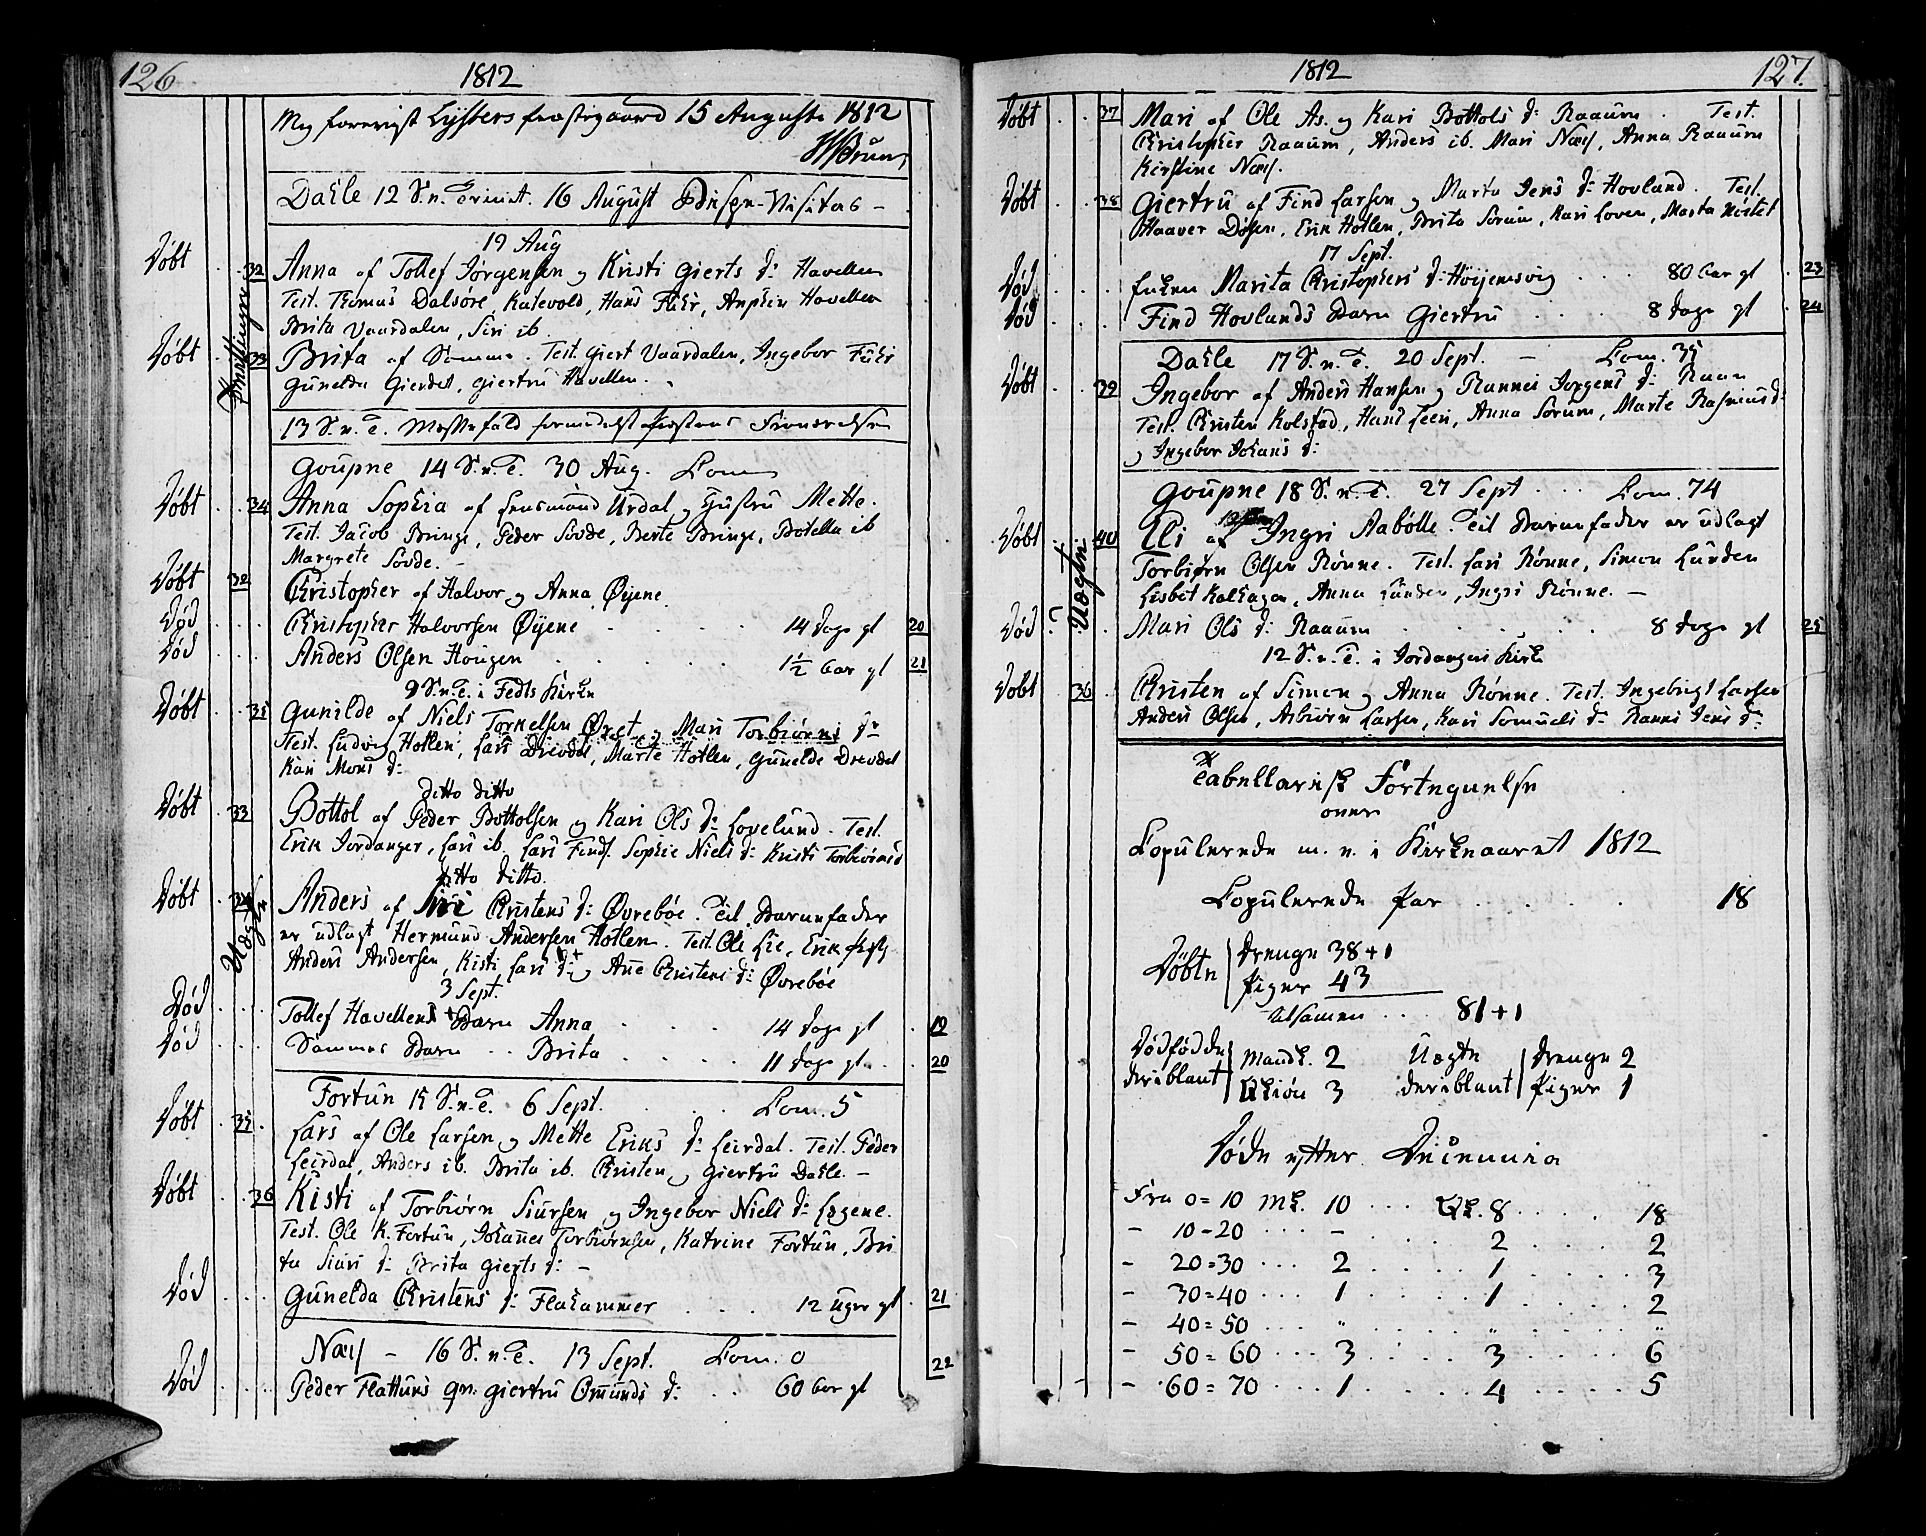 126
1812
Præstegaard 15 Augusti 1812
Dahle 12 S. n. Trinit. 16 August Bispe-Visitas -
19 Aug
Døbt 32 Anna af Tollef Jørgensen og Kristi Gierts d: Havellen
Test. Thomas Dalsøre, Hans Fuhr, Havellen
Brita Vaardalen, Siri ib.
Tvillinger
Døbt 33 Brita af Samme. Test. Giert Vaardalen, Ingebor Fuhr
Gunelda Gierdet, Giertru Havellen.
13 S. n. T. Messefald formedelst Præstens Fraværelse
Goupne 14 S. n. T. 30 Aug. Com
Døbt 34 Anna Sophia af Urdal og Mette.
Test. Jacob Bringe, Peder Sovde, Berte Bringe, Botella ib
Margrete Sovde. -
Døbt 32 Christopher af Halvor og Anna Øyene
Død Christopher Halvorsen Øyene 14 dage gl 20
Død Anders Olsen Hougen 1½ aar gl 21
9 S. n. T. i Fedts Kirke
Døbt 35 Gunilde af Niels Torkelsen Øret og Mari Torbiørns dr
Test. Ludvig Hotlen, Lars Drevdal, Marte Hotlen, Gunelde Drevdal
Kari Mons d:
ditto ditto
Døbt 33 Bottol af Peder Bottolsen og Kari Ols d: Lovelund. Test.
Erik Jordanger, Lars ib. Lars Finds. Sophie Niels d: Kristi Torbiørns d
ditto ditto.
Døbt 34 Anders af Siri Christens d: Øvrebøe. Til Barnefader
Uægte
er udlagt Hermund Andersen Hotlen. Test. Ole Lie, Erik
Anders Andersen, Kisti Lars d: og Ane Christens d: Øvrebøe
3 Sept.
Død Tollef Havellens Barn Anna 14 dage gl 19
Død Sammes Barn Brita 11 dage gl. 20
Fortun 15 S. n. T. 6 Sept. Com. 5
Døbt 35 Lars af Ole Larsen og Mette Eriks d: Leirdal. Test. Peder
Leirdal, Anders ib. Brita ib. Christen og Giertru Dahle. -
Døbt 36 Kisti af Torbiørn Siursen og Ingebor Niels d: Eegene.
Test. Ole K. Fortun, Johannes Torbiørnsen, Katrine Fortun, Bri
ta Siurs d: Brita Gierts d: -
Død Gunelda Christens d: Flahammer 12 uger gl. 21
Næss - 16 S. n. T. 13 Sept. Com. 0
Død Peder Flattuns Qv. Giertru Omunds d: 60 aar gl 22
1812
127
Døbt 37 Mari af Ole As. og Kari Bottols d: Raaum. Test.
Christopher Raaum, Anders ib. Mari Næss, Anna Raaum
Kirstine Næss.
Døbt 38 Giertru af Find Larsen og Marta Jens d: Hovland. Test.
Haaver Døsen, Erik Hotlen, Brita Sorum, Kari Loven, Marta
17 Sept.
Død Enken Marita Christophers d: 80 aar gl 23
Død Find Hovlands Barn Giertru 8 dage gl 24
Dahle 17 S. n. T. 20 Sept. - Com. 35
Døbt 39 Ingebor af Anders Hansen og Rannei Jørgens d: Raan
Test. Christen Kolstad, Hans Leeri, Anna Sorum, Marte Rasmus d:
og Ingebor Johans d:
Goupne 18 S. n. T. 27 Sept Com. 74
Døbt 40 Eli af Ingri Aabølle. Til Barnefader er udlagt
Uægte
Torbiørn Olsen Rønne. Test. Lars Rønne, Simon Lunden
Lisbet Kalhagen, Anna Lunden, Ingri Rønne. -
Død Mari Ols d: Raaum 8 dage gl 25
12 S. n. T. i Jordangers Kirke
Døbt 36 Christen af Simon og Anna Rønne. Test. Ingebrigt Larsen
Anders Olsen, Asbiørn Larsen, Kari Samuels d: Ranni Jens d:
Tabellarisk Fortegnelse
over
Copulerede m. v. i Kirkeaaret 1812
Copulerede Par 18
Døbte Drenge 38+1
Piger 43
Tilsamen 81+1
Dødfødde deriblant Mandk. 2
Qvkiøn 3
Uægte deriblant Drenge 2
Piger 1
Døde efter Decennia
Fra 0=10 Mk. 10 Qk. 8 18
- 10-20 - 2 2
- 20=30 2 1 3
- 30=40 1 1 2
- 40=50 " " "
- 50=60 3 3 6
- 60=70 1 4 5